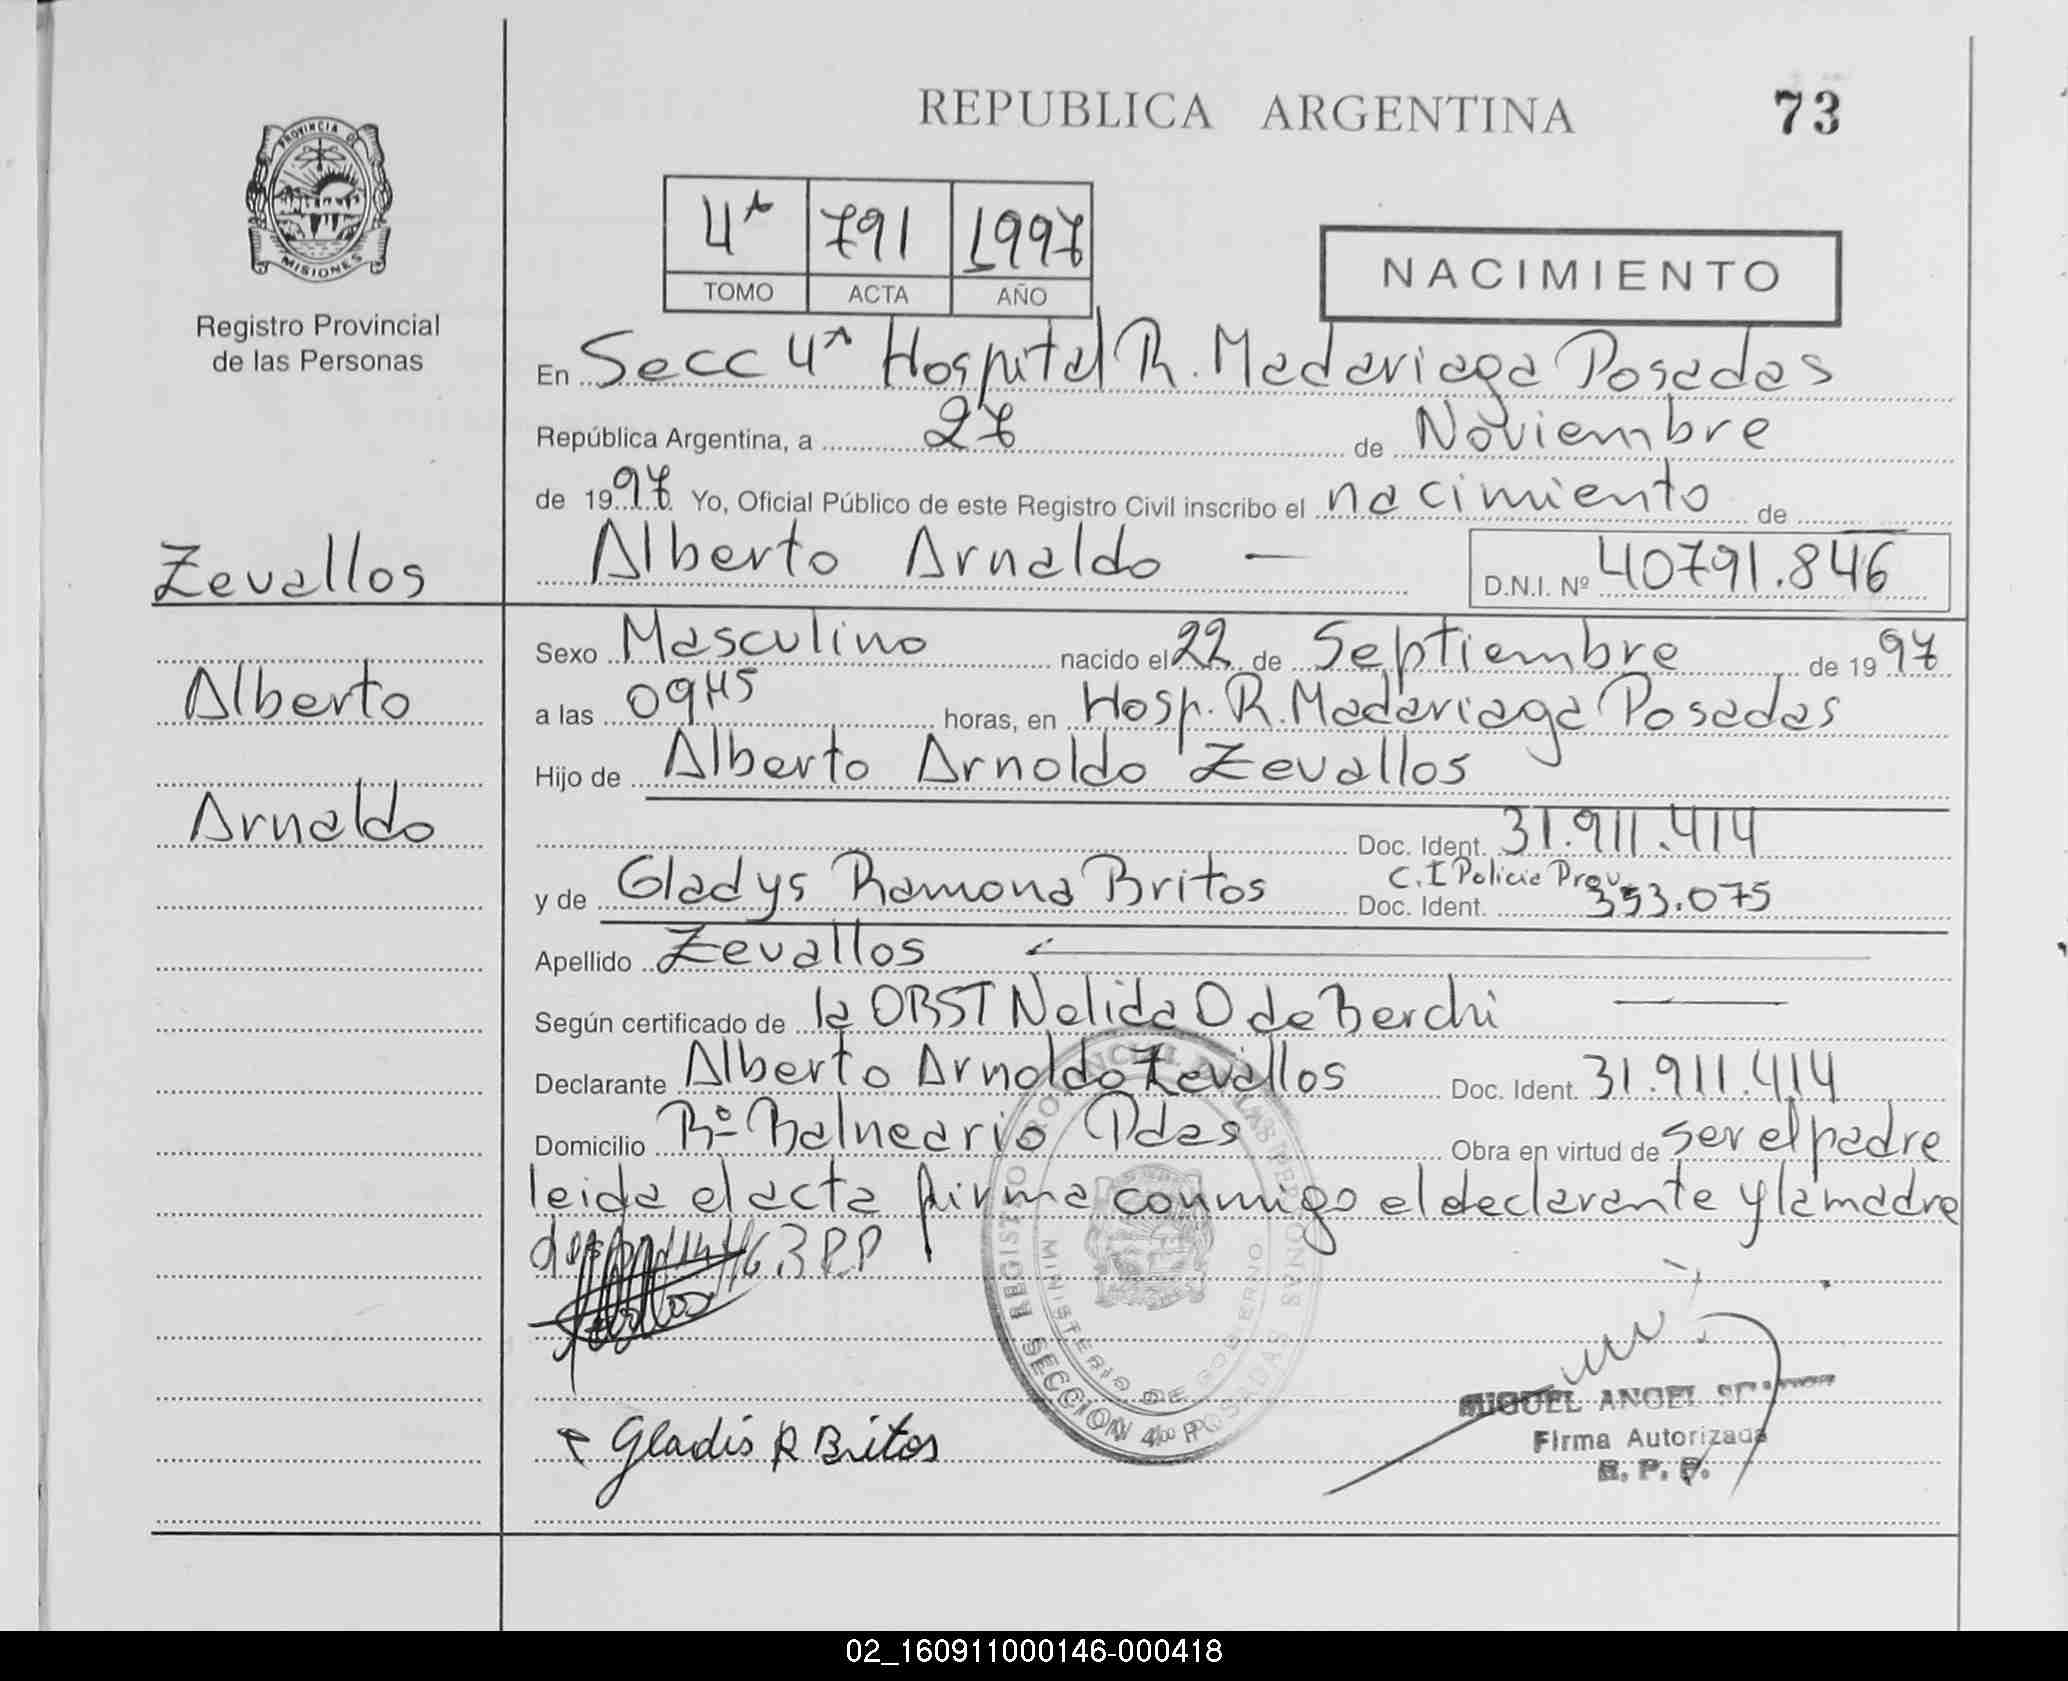 REPUBLICA ARGENTINA
73
PROVINCIA DE
MISIONES
Registro Provincial
de las Personas
4ª 791 1997
TOMO ACTA AÑO
NACIMIENTO
En Secc 4ª Hospital R. Madariaga Posadas
República Argentina, a 27 de Noviembre
de 1997 Yo, Oficial Público de este Registro Civil inscribo el nacimiento de
Alberto Arnaldo — D.N.I. Nº 40791.846
Zevallos
Alberto
Arnaldo
Sexo Masculino nacido el 22 de Septiembre de 1997
a las 09HS horas, en Hosp. R. Madariaga Posadas
Hijo de Alberto Arnoldo Zevallos
Doc. Ident. 31.911.414
C.I Policia Prov.
y de Gladys Ramona Britos Doc. Ident. 353.075
Apellido Zevallos
Según certificado de la OBST Nelida O de Berchi
Declarante Alberto Arnoldo Zevallos Doc. Ident. 31.911.414
Domicilio Bº Balneario Pdas Obra en virtud de ser el padre
leida el acta firma conmigo el declarante y la madre
REGISTRO PROVINCIAL DE LAS PERSONAS
MINISTERIO DE GOBIERNO
SECCION 4ta POSADAS
Gladis R Britos
MIGUEL ANGEL
Firma Autorizada
R. P. P.
02_160911000146-000418